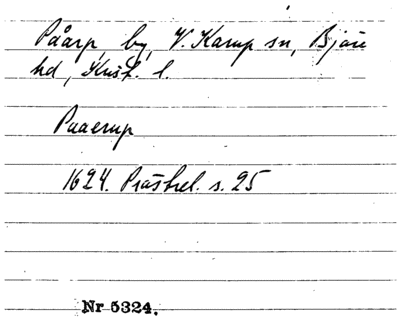 Påarp, by, V. Karup sn, Bjäre
hd, Krist. l.
Paaerup
1624. Prästrel. s. 25
Nr 5324.